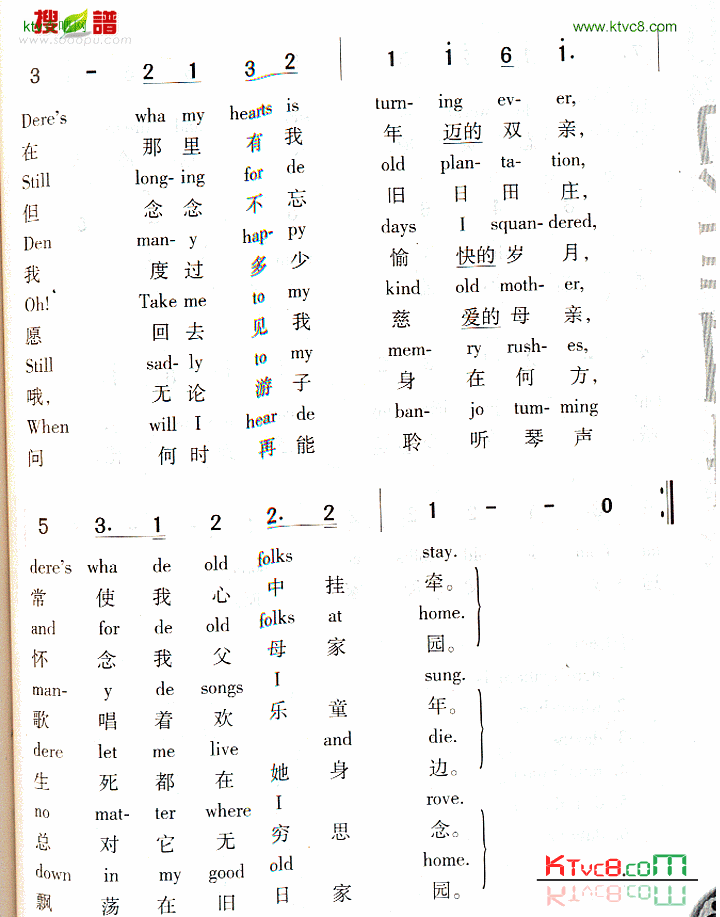 搜谱
www.sooopu.com
www.ktvc8.com
3 - 2 1 3 2 | 1 i 6 i. |
Dere's wha my hearts is turn- ing ev- er,
在 那 里 有 我 年 迈的 双 亲,
Still long- ing for de old plan- ta- tion,
但 念 念 不 忘 旧 日 田 庄,
Den man- y hap- py days I squan- dered,
我 度 过 多 少 愉 快的 岁 月,
Oh! Take me to my kind old moth- er,
愿 回 去 见 我 慈 爱的 母 亲,
Still sad- ly to my mem- ry rush- es,
哦, 无 论 游 子 身 在 何 方,
When will I hear de ban- jo tum- ming
问 何 时 再 能 聆 听 琴 声
5 3. 1 2 2. 2 | 1 - - 0 :||
dere's wha de old folks stay.
常 使 我 心 中 挂 牵。
and for de old folks at home.
怀 念 我 父 母 家 园。
man- y de songs I sung.
歌 唱 着 欢 乐 童 年。
dere let me live and die.
生 死 都 在 她 身 边。
no mat- ter where I rove.
总 对 它 无 穷 思 念。
down in my good old home.
飘 荡 在 旧 日 家 园。
KTvc8.com